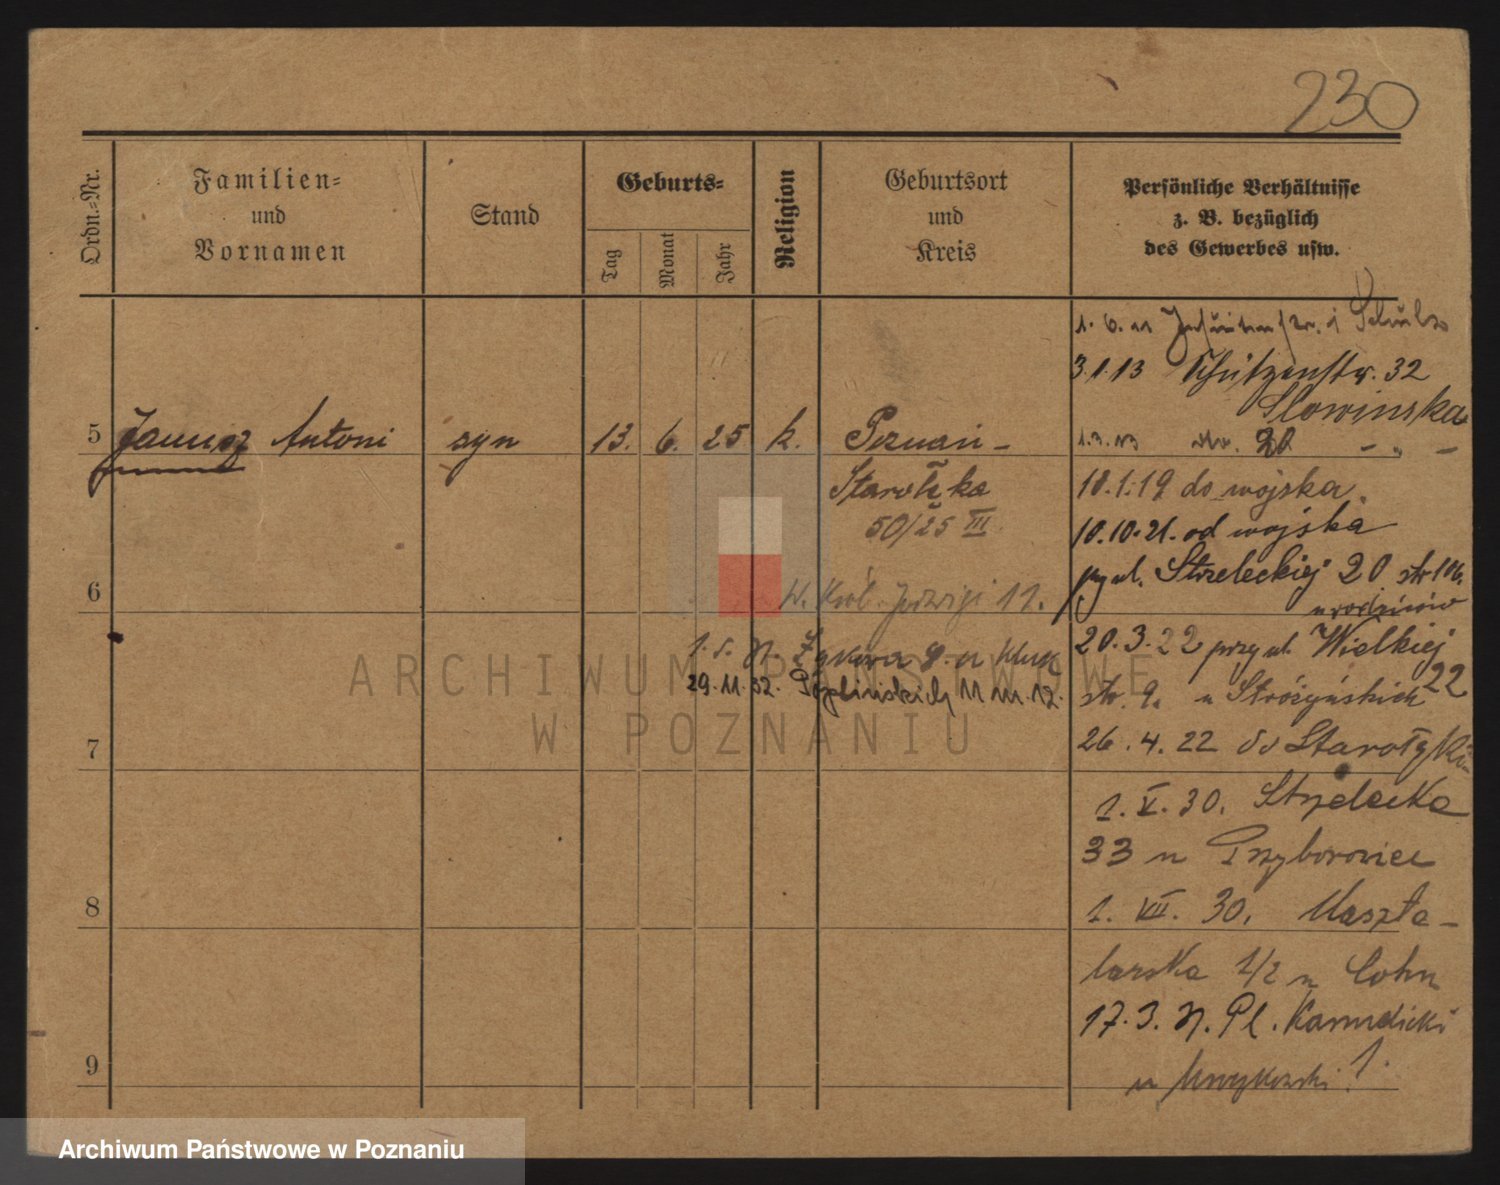 230
Ordn.=Nr.
Familien=
und
Vornamen
Stand
Geburts=
Tag
Monat
Jahr
Religion
Geburtsort
und
Kreis
Persönliche Verhältnisse
z. B. bezüglich
des Gewerbes usw.
1. 6. 11
3.1.13 Schützenstr. 32
Slowinska
1.3.13 str. 20 - „ -
5 Janusz Antoni syn 13. 6. 25 k. Poznań -
Starołęka
50/25 III
18.1.19 do wojska.
10.10.21. od wojska
przy ul. Strzeleckiej 20 str 106.
u rodziców
6
W. Król. Jadwigi 11.
20.3.22 przy ul. Wielkiej 22
str. 9. u Stróżyńskich
29.11.32. 11 m. 12.
7
26.4.22 do Starołęki
1. V. 30. Strzelecka
33 u
8
1. VII. 30. Maszta-
larska 1/2 u Cohn
17.3. Pl.
9
u 1.
ARCHIWUM PAŃSTWOWE
W POZNANIU
Archiwum Państwowe w Poznaniu